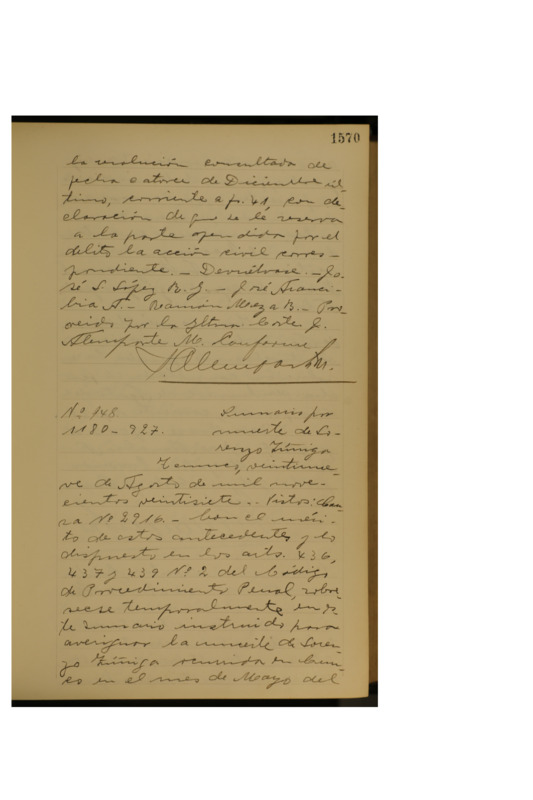 1570
la resolución consultada de
fecha catorce de Diciembre úl-
timo, corriente a fs. 41, con de-
claración de que se le reserva
a la parte ofendida por el
delito la acción civil corres-
pondiente. - Devuélvase. - Jo-
sé S. López R. G. - José Aranci-
bia A. - Ramón Meza B. - Pro-
veido por la Iltma. Corte J.
Alemparte M. Conforme
J. Alemparte M.
Nº 948. Sumario por
1180-927. muerte de Lo-
renzo Zúñiga
Temuco, veintinue-
ve de Agosto de mil nove-
cientos veintisiete. - Vistos: Cau-
sa Nº 2916. - Con el méri-
to de estos antecedentes y lo
dispuesto en los arts. 436,
437 y 439 Nº 2 del Código
de Procedimiento Penal, sobre-
sese temporalmente en es-
te sumario instruido para
averiguar la muerte de Loren-
zo Zúñiga ocurrida en Cun-
co en el mes de Mayo del